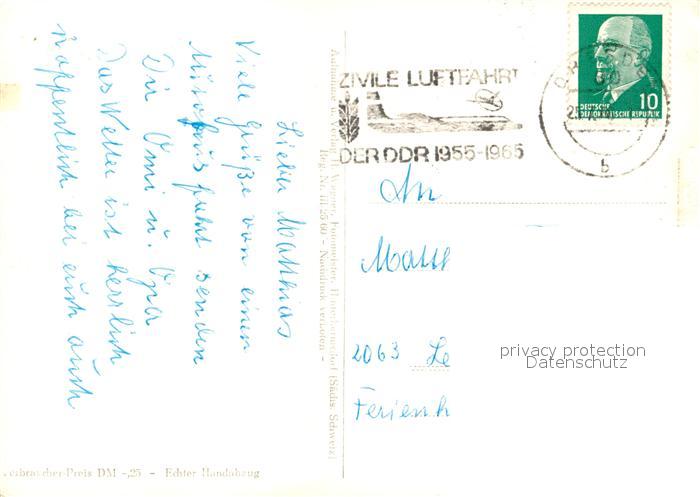 Lieber Matthias
Viele Grüße von einem
Ausflug sendet
Dir Omi u. Opa
Das Wetter ist herrlich
hoffentlich bei euch auch
ZIVILE LUFTFAHRT
DER DDR 1955-1965
DEUTSCHE 10
DEMOKRATISCHE REPUBLIK
b
Reg.-Nr. III 25 60 - Nachdruck verboten -
An
Matth
2063 Le
Ferienh
privacy protection
Datenschutz
erbraucher-Preis DM -,25 - Echter Handabzug